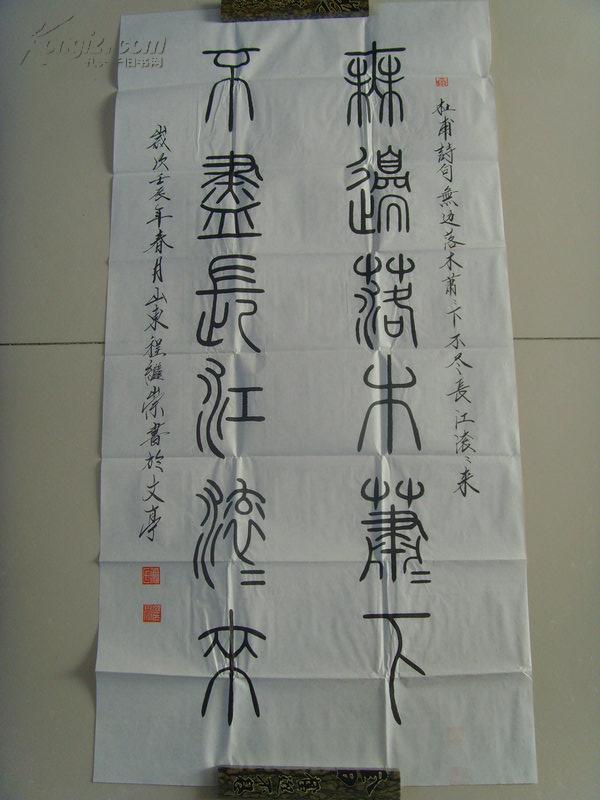 杜甫詩句無边落木蕭〻下不尽長江滚〻来
無邊落木蕭〻下
不盡長江滚〻來
歲次壬辰年春月山東程繼崇書於文亭
孔夫子旧书网